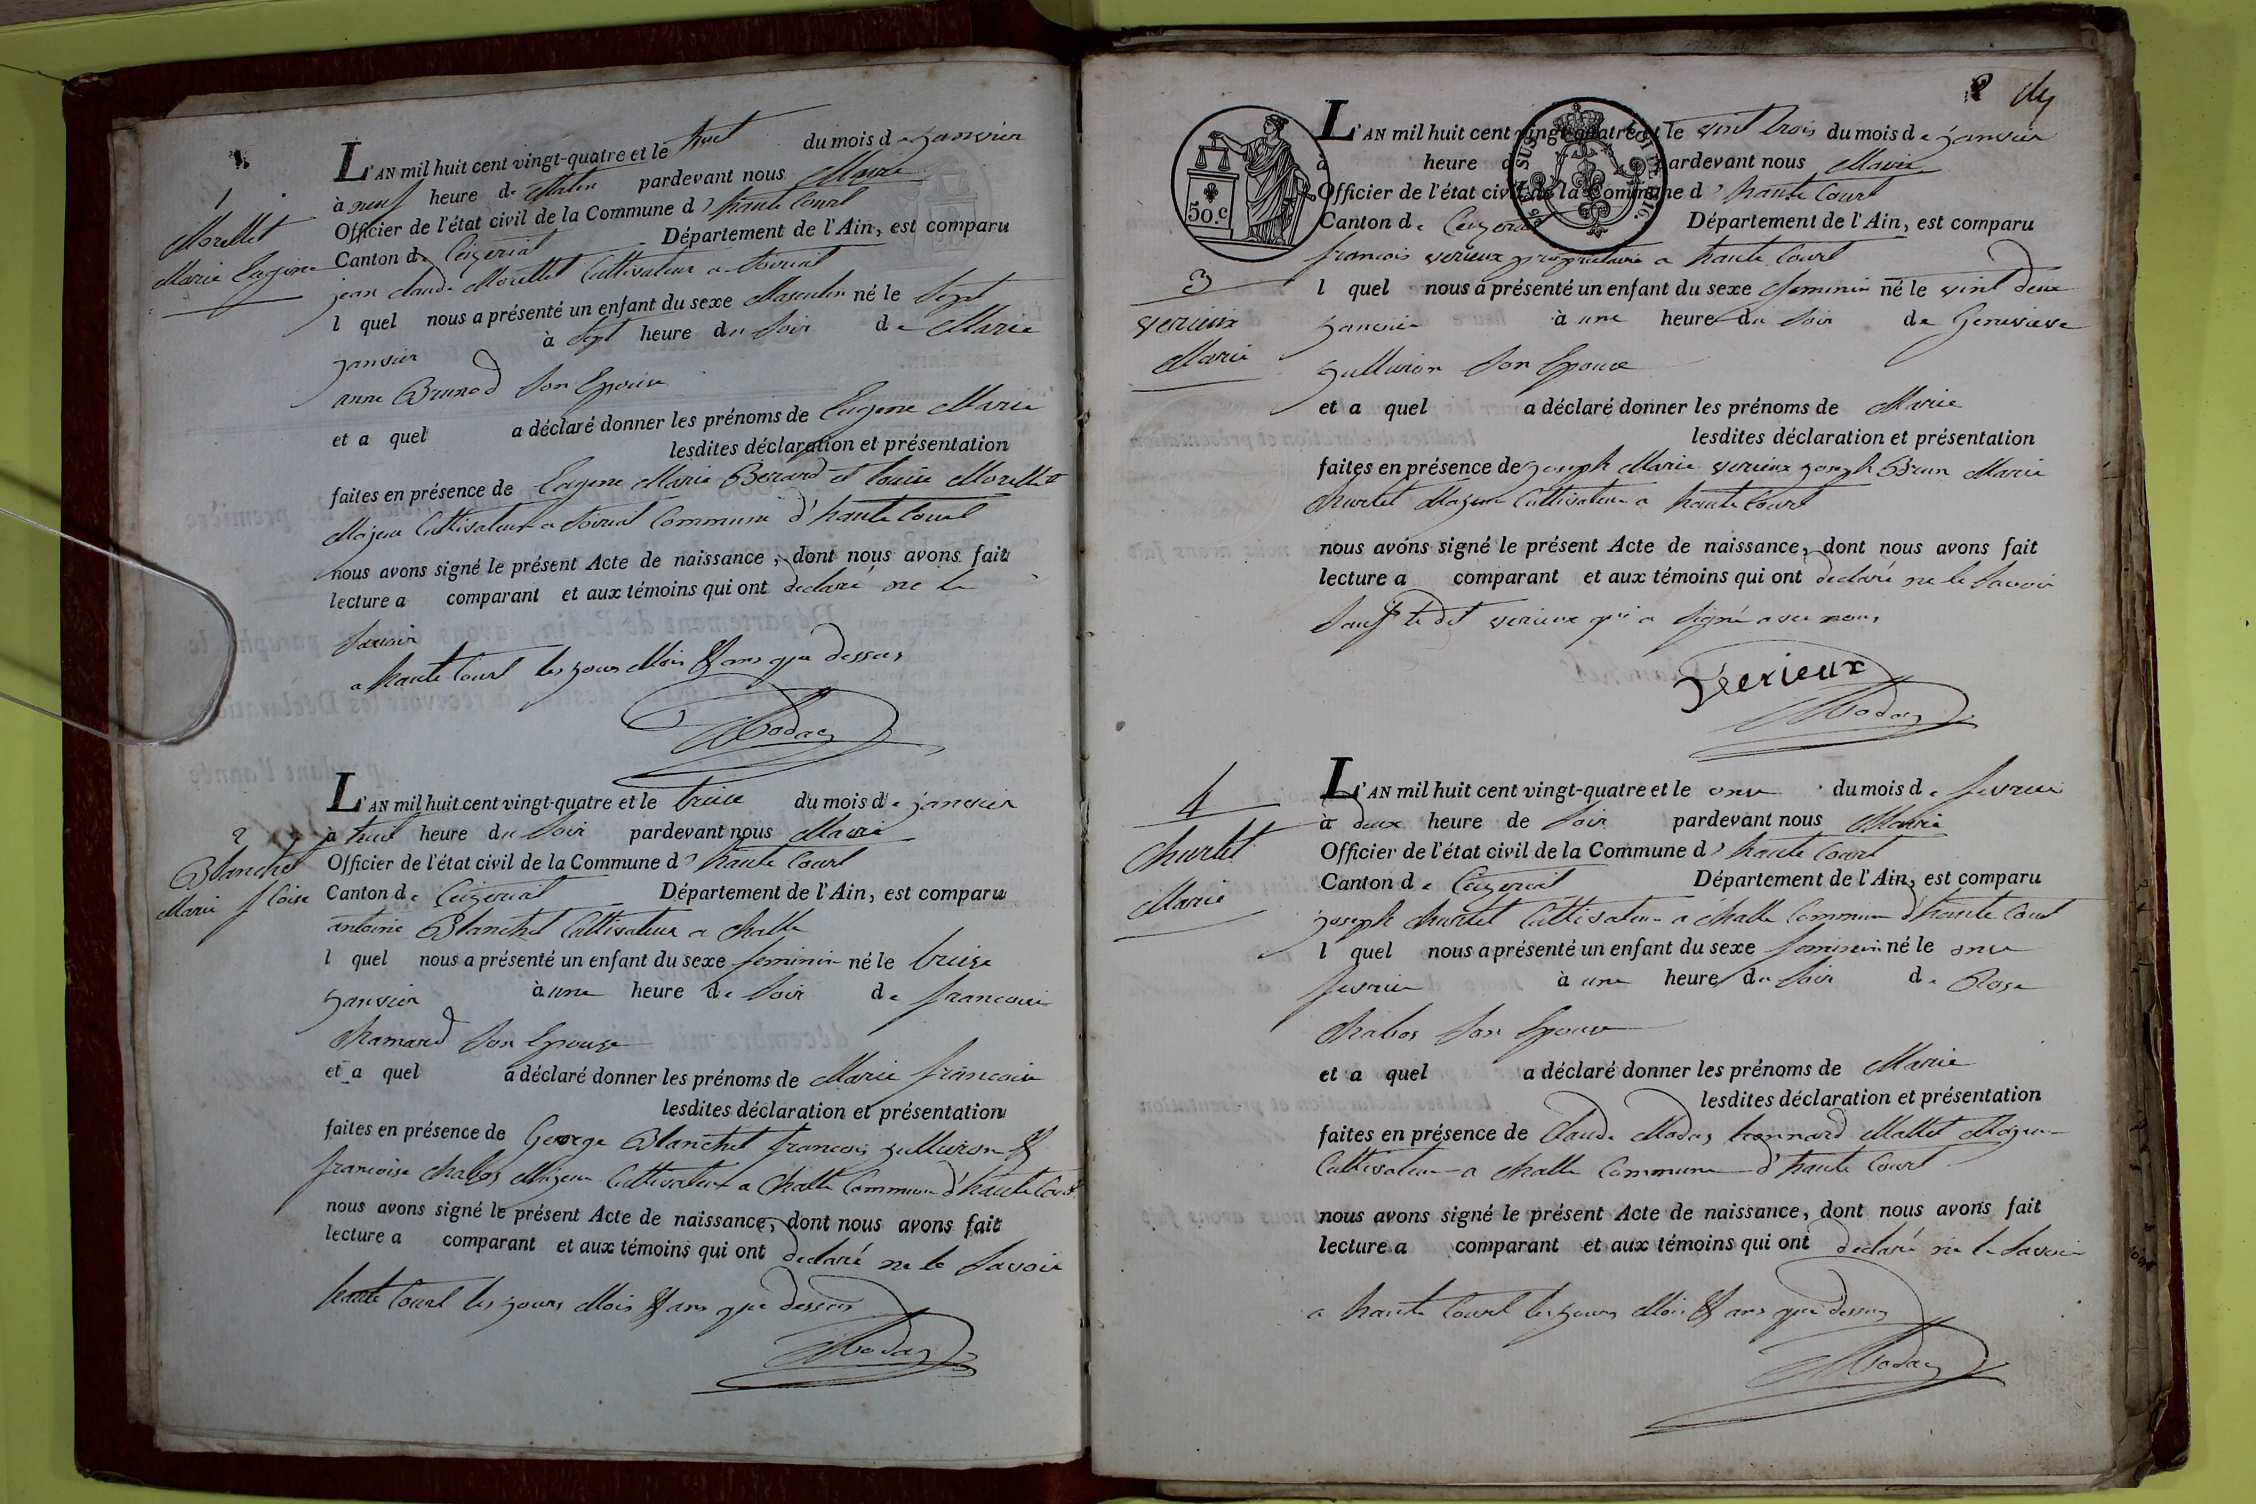 1
Morellet
Marie Eugene
L'AN mil huit cent vingt-quatre et le huit du mois de janvier
à neuf heure de Matin pardevant nous Maire
Officier de l'état civil de la Commune d'haute Court
Canton de Ceizeriat Département de l'Ain, est comparu
jean claude Morellet Cultivateur a
l quel nous a présenté un enfant du sexe Masculin né le Sept
janvier à Sept heure du Soir de Marie
anne Brunod Son Epouse
et a quel a déclaré donner les prénoms de Eugene Marie
lesdites déclaration et présentation
faites en présence de Eugene Marie Berard et louise Morellet
Majeur Cultivateur a Commune d'haute Court
nous avons signé le présent Acte de naissance, dont nous avons fait
lecture a comparant et aux témoins qui ont declaré ne le
Savoir
a haute Court les jours Mois & ans que dessus
Modas
2
Blanchet
Marie
L'AN mil huit cent vingt-quatre et le treize du mois de janvier
à huit heure du Soir pardevant nous Maire
Officier de l'état civil de la Commune d'haute Court
Canton de Ceizeriat Département de l'Ain, est comparu
antoine Blanchet Cultivateur a Challe
l quel nous a présenté un enfant du sexe feminin né le treize
janvier à une heure de Soir de francoise
Chanard Son Epouse
et a quel a déclaré donner les prénoms de Marie francoise
lesdites déclaration et présentation
faites en présence de George Blanchet francois Jullieron &
francoise Chabos Majeur Cultivateur a Challe Commune d'haute Court
nous avons signé le présent Acte de naissance, dont nous avons fait
lecture a comparant et aux témoins qui ont declaré ne le Savoir
haute Court les jours Mois & ans que dessus
Modas
2
50. c
3
verieux
Marie
L'AN mil huit cent vingt-quatre et le vint trois du mois de janvier
à heure pardevant nous Maire
Officier de l'état civil de la Commune d'haute Court
Canton de Ceizeriat Département de l'Ain, est comparu
francois verieux proprietaire a haute Court
l quel nous a présenté un enfant du sexe feminin né le vint deux
janvier à une heure du Soir de Genevieve
Jullieron Son Epouse
et a quel a déclaré donner les prénoms de Marie
lesdites déclaration et présentation
faites en présence de joseph Marie verieux joseph Brun Marie
Churlet Majeur Cultivateur a haute Court
nous avons signé le présent Acte de naissance, dont nous avons fait
lecture a comparant et aux témoins qui ont declaré ne le Savoir
Sauf le dit verieux qui a Signé avec nous
Verieux
Modas
4
Churlet
Marie
L'AN mil huit cent vingt-quatre et le onze du mois de fevrier
à deux heure de Soir pardevant nous Maire
Officier de l'état civil de la Commune d'haute Court
Canton de Ceizeriat Département de l'Ain, est comparu
joseph Churlet Cultivateur a Challe Commune d'haute Court
l quel nous a présenté un enfant du sexe feminin né le onze
fevrier à une heure du Soir de Rose
Chabos Son Epouse
et a quel a déclaré donner les prénoms de Marie
lesdites déclaration et présentation
faites en présence de Claude Modas leonnard Mallet Majeur
Cultivateur a Challe Commune d'haute Court
nous avons signé le présent Acte de naissance, dont nous avons fait
lecture a comparant et aux témoins qui ont declaré ne le Savoir
a haute Court les jours Mois & ans que dessus
Modas